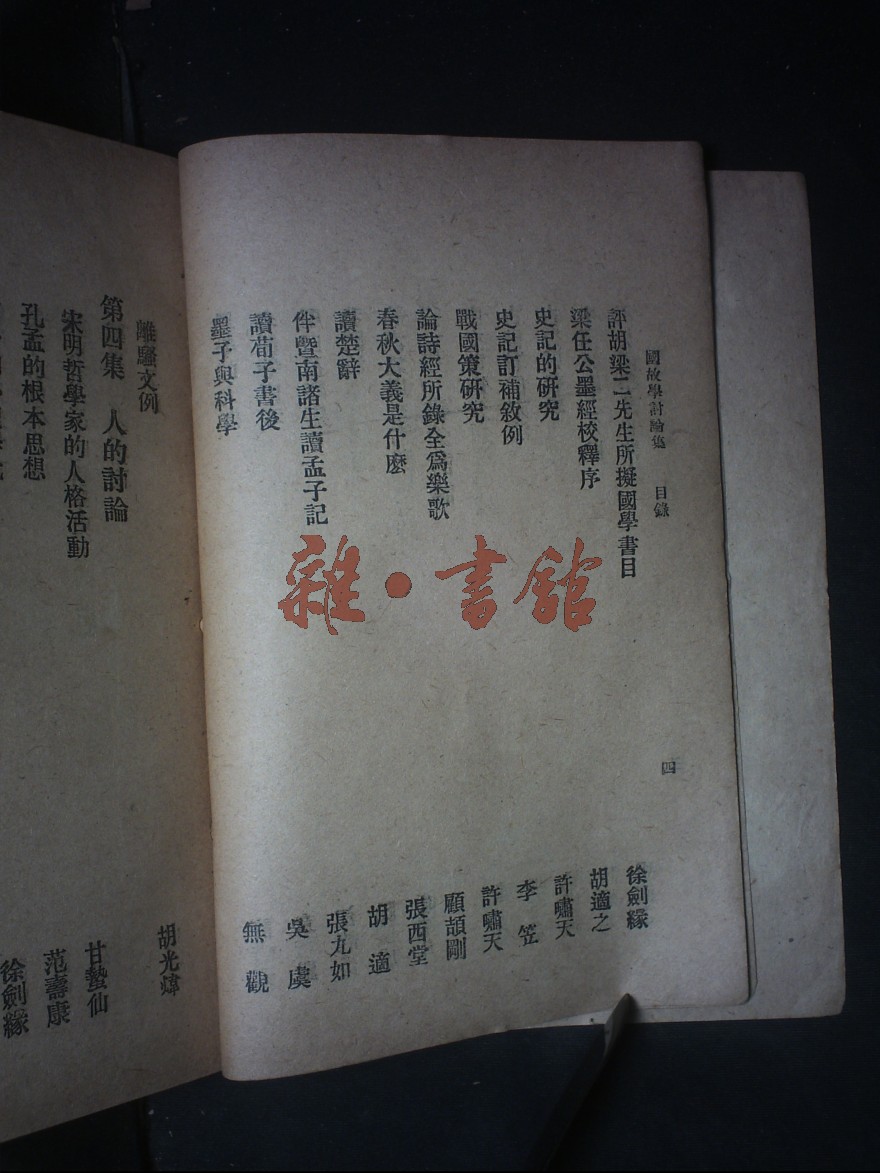 國故學討論集 目錄
四
評胡梁二先生所擬國學書目 徐劍緣
梁任公墨經校釋序 胡適之
史記的研究 許嘯天
史記訂補敘例 李笠
戰國策研究 許嘯天
論詩經所錄全爲樂歌 顧頡剛
春秋大義是什麽 張西堂
讀楚辭 胡適
伴暨南諸生讀孟子記 張九如
讀荀子書後 吳虞
墨子與科學 無觀
離騷文例 胡光煒
第四集 人的討論
宋明哲學家的人格活動 甘蟄仙
孔孟的根本思想 范壽康
徐劍緣
雜·書館